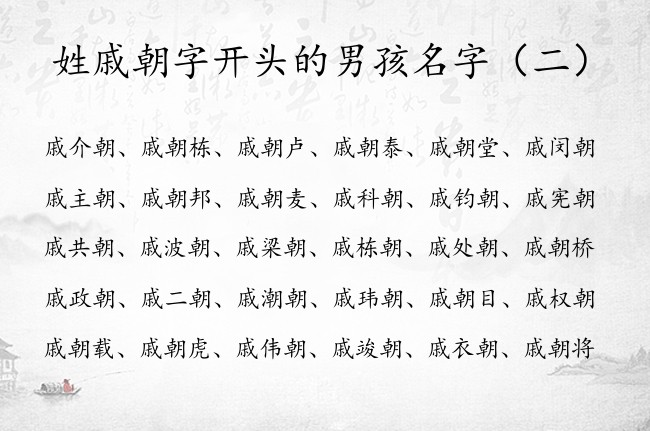 姓戚朝字开头的男孩名字（二）
戚介朝、戚朝栋、戚朝卢、戚朝泰、戚朝堂、戚闵朝
戚主朝、戚朝邦、戚朝麦、戚科朝、戚钧朝、戚宪朝
戚共朝、戚波朝、戚梁朝、戚栋朝、戚处朝、戚朝桥
戚政朝、戚二朝、戚潮朝、戚玮朝、戚朝目、戚权朝
戚朝载、戚朝虎、戚伟朝、戚竣朝、戚衣朝、戚朝将